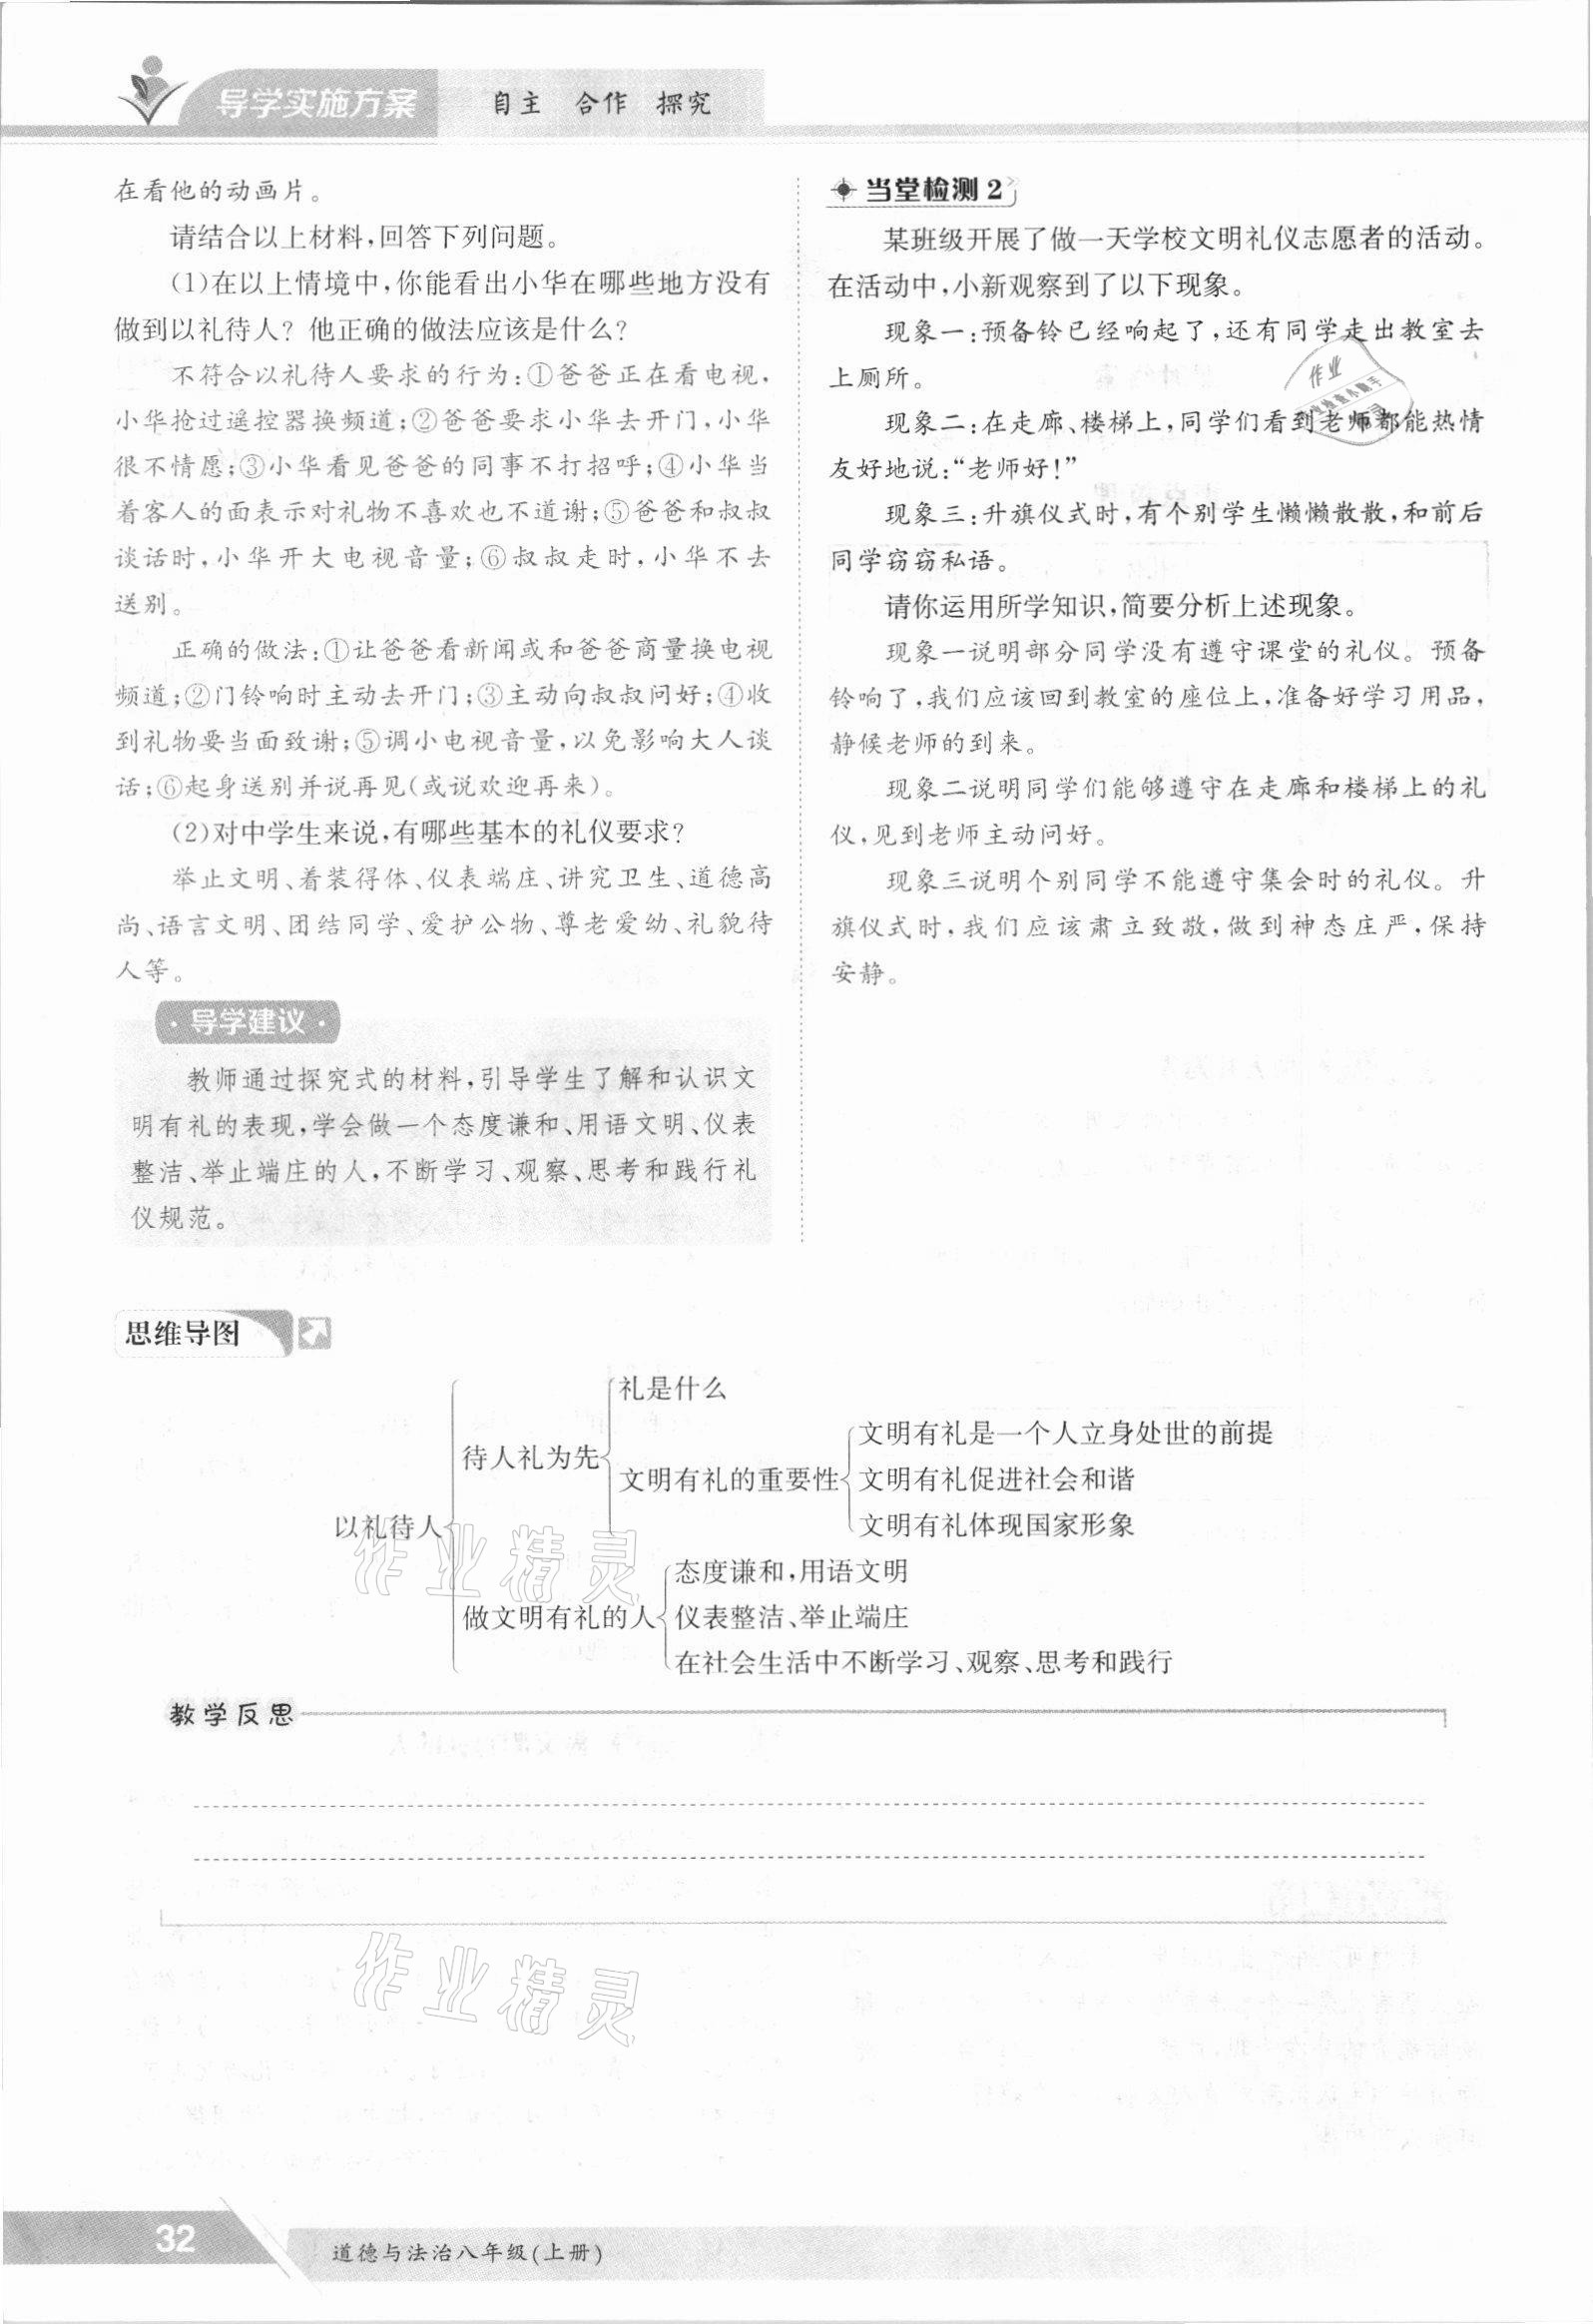 导学实施方案
自主 合作 探究
在看他的动画片。
请结合以上材料,回答下列问题。
(1)在以上情境中,你能看出小华在哪些地方没有
做到以礼待人？他正确的做法应该是什么？
不符合以礼待人要求的行为:①爸爸正在看电视,
小华抢过遥控器换频道;②爸爸要求小华去开门,小华
很不情愿;③小华看见爸爸的同事不打招呼;④小华当
着客人的面表示对礼物不喜欢也不道谢;⑤爸爸和叔叔
谈话时,小华开大电视音量;⑥叔叔走时,小华不去
送别。
正确的做法:①让爸爸看新闻或和爸爸商量换电视
频道;②门铃响时主动去开门;③主动向叔叔问好;④收
到礼物要当面致谢;⑤调小电视音量,以免影响大人谈
话;⑥起身送别并说再见(或说欢迎再来)。
(2)对中学生来说,有哪些基本的礼仪要求?
举止文明、着装得体、仪表端庄、讲究卫生、道德高
尚、语言文明、团结同学、爱护公物、尊老爱幼、礼貌待
人等。
·导学建议·
教师通过探究式的材料,引导学生了解和认识文
明有礼的表现,学会做一个态度谦和、用语文明、仪表
整洁、举止端庄的人,不断学习、观察、思考和践行礼
仪规范。
当堂检测2
某班级开展了做一天学校文明礼仪志愿者的活动。
在活动中,小新观察到了以下现象。
现象一:预备铃已经响起了,还有同学走出教室去
上厕所。
现象二:在走廊、楼梯上,同学们看到老师都能热情
友好地说:“老师好!”
现象三:升旗仪式时,有个别学生懒懒散散,和前后
同学窃窃私语。
请你运用所学知识,简要分析上述现象。
现象一说明部分同学没有遵守课堂的礼仪。预备
铃响了,我们应该回到教室的座位上,准备好学习用品,
静候老师的到来。
现象二说明同学们能够遵守在走廊和楼梯上的礼
仪,见到老师主动问好。
现象三说明个别同学不能遵守集会时的礼仪。升
旗仪式时,我们应该肃立致敬,做到神态庄严,保持
安静。
作业
思维导图
礼是什么
文明有礼是一个人立身处世的前提
待人礼为先
文明有礼的重要性
文明有礼促进社会和谐
文明有礼体现国家形象
以礼待人
作业精灵
态度谦和,用语文明
做文明有礼的人
仪表整洁、举止端庄
在社会生活中不断学习、观察、思考和践行
教学反思
作业精灵
32
道德与法治八年级(上册)